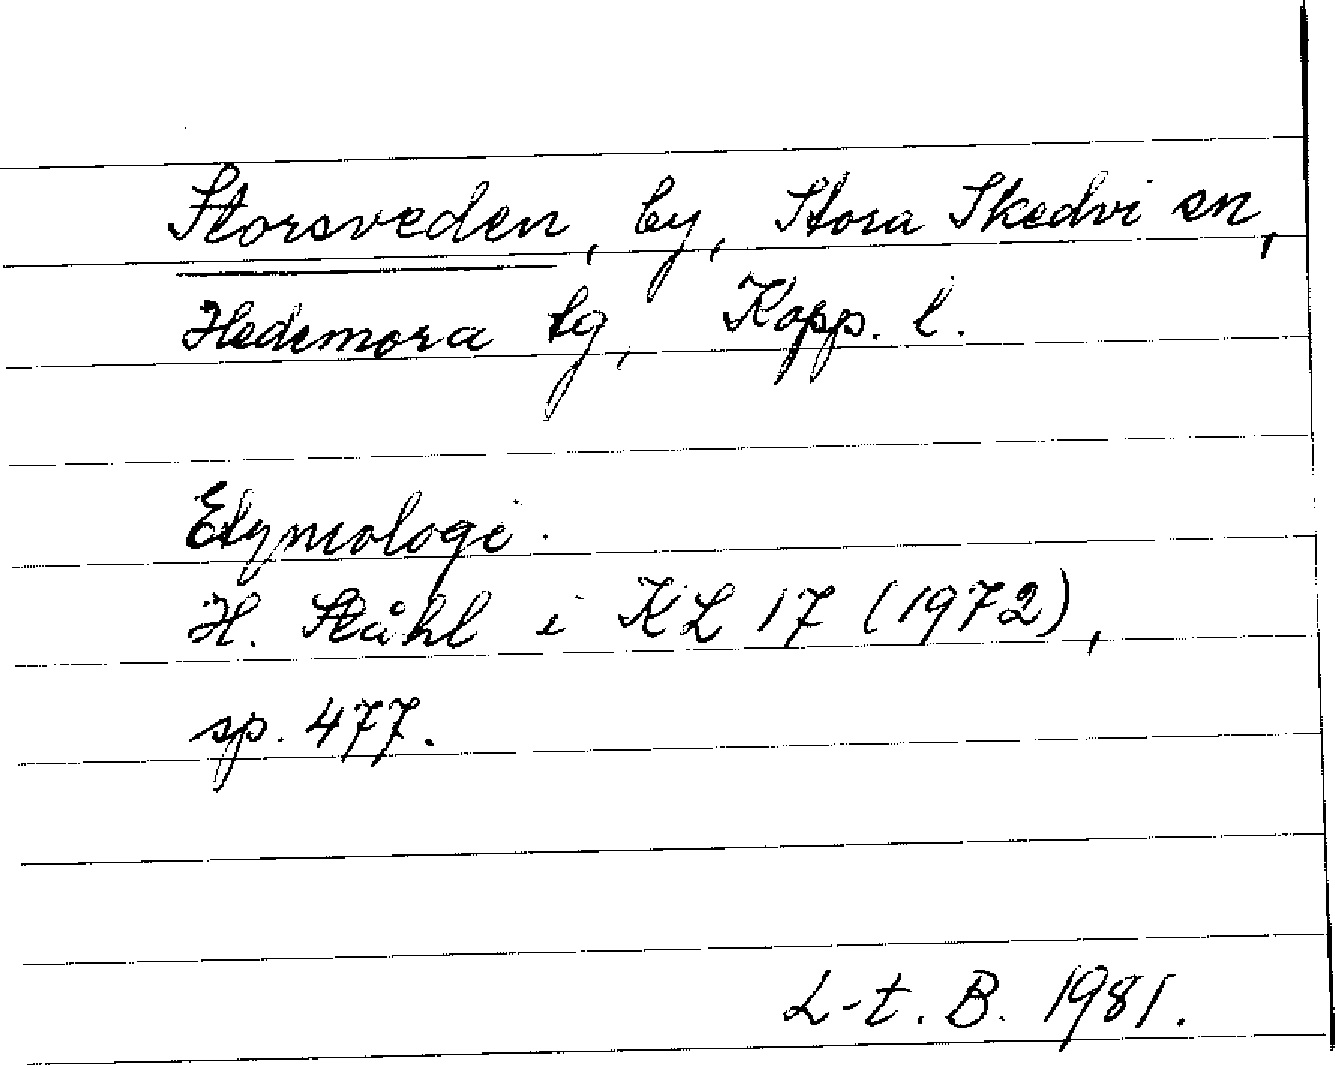 Storsveden, by, Stora Skedvi sn,
Hedemora tg, Kopp. l.
Etymologi.
H. Ståhl i KL 17 (1972),
sp. 477.
L-t. B. 1981.